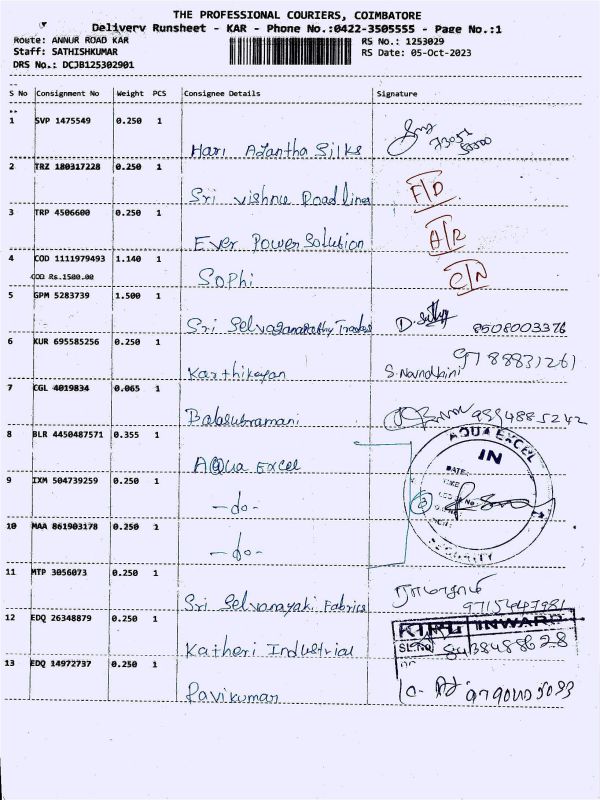 THE PROFESSIONAL COURIERS, COIMBATORE
Delivery Runsheet - KAR - Phone No.:0422-3505555 - Page No.:1
Route: ANNUR ROAD KAR
RS No.: 1253029
Staff: SATHISHKUMAR
RS Date: 05-Oct-2023
DRS No.: DCJB125302901
S No Consignment No Weight PCS Consignee Details Signature
1 SVP 1475549 0.250 1
Hari Adantha Silks
2 TRZ 180317228 0.250 1
Sri Vishnu Roadlines F/D
3 TRP 4506600 0.250 1
Ever Power Solution A/R
4 COD 1111979493 1.140 1
COD Rs.1500.00
Sophi C/N
5 GPM 5283739 1.500 1
Sri Selvaganapathy Traders 8508003376
6 KUR 695585256 0.250 1
Karthikeyan S. Nandhini
7 CGL 4019834 0.065 1
Balasubramani 9894885242
8 BLR 4450487571 0.355 1
Aqua Excel
AQUA EXCEL
IN
DATE
9 IXM 504739259 0.250 1
-do- 3
10 MAA 861903178 0.250 1
-do-
SECURITY
11 MTP 3056073 0.250 1
Sri Selvanayaki Fabrics 9715447981
12 EDQ 26348879 0.250 1
INWARD
Katheri Industrial
13 EDQ 14972737 0.250 1
Ravikumar